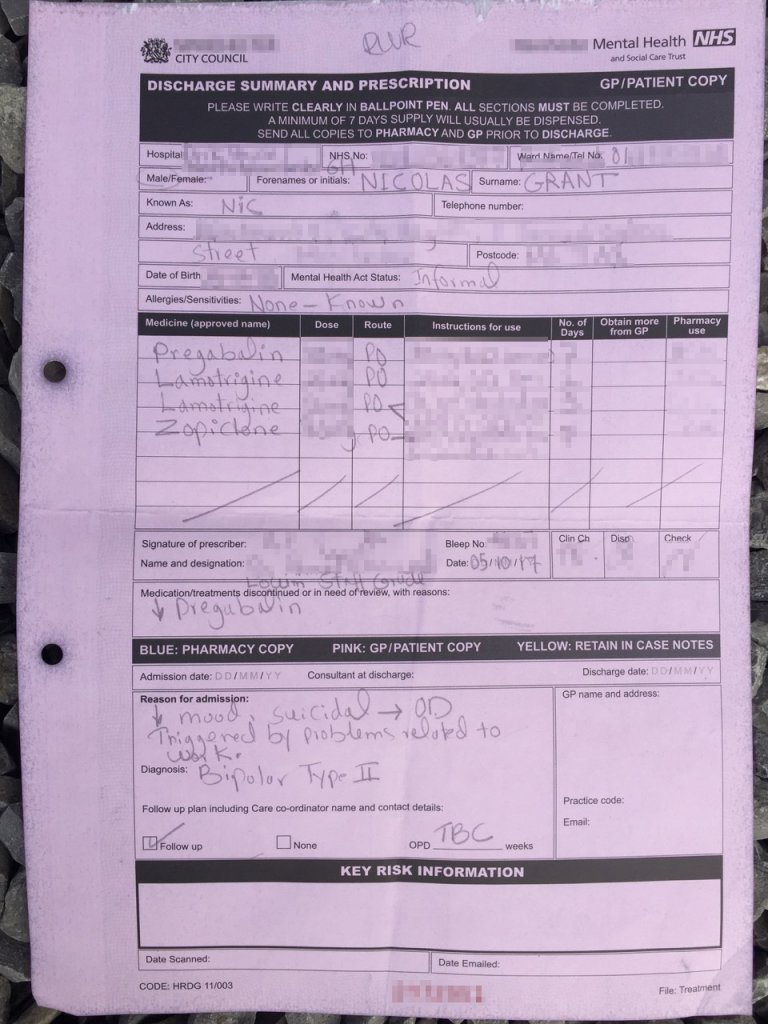 RWR
CITY COUNCIL
Mental Health NHS
and Social Care Trust
DISCHARGE SUMMARY AND PRESCRIPTION GP/PATIENT COPY
PLEASE WRITE CLEARLY IN BALLPOINT PEN. ALL SECTIONS MUST BE COMPLETED.
A MINIMUM OF 7 DAYS SUPPLY WILL USUALLY BE DISPENSED.
SEND ALL COPIES TO PHARMACY AND GP PRIOR TO DISCHARGE.
Hospital NHS No: Ward Name/Tel No: 01
Male/Female: Forenames or initials: NICOLAS Surname: GRANT
Known As: Nic Telephone number:
Address:
Street Postcode:
Date of Birth Mental Health Act Status: Informal
Allergies/Sensitivities: None - Known
Medicine (approved name) Dose Route Instructions for use No. of Days Obtain more from GP Pharmacy use
Pregabalin PO
Lamotrigine PO
Lamotrigine PO
Zopiclone PO
Signature of prescriber: Bleep No Clin Ch Disp Check
Name and designation: Date: 05/10/17
Medication/treatments discontinued or in need of review, with reasons:
↓ Pregabalin
BLUE: PHARMACY COPY PINK: GP/PATIENT COPY YELLOW: RETAIN IN CASE NOTES
Admission date: DD/MM/YY Consultant at discharge: Discharge date: DD/MM/YY
Reason for admission:
↓ mood, suicidal → OD
Triggered by problems related to
work.
Diagnosis: Bipolar Type II
Follow up plan including Care co-ordinator name and contact details:
Follow up None OPD TBC weeks
GP name and address:
Practice code:
Email:
KEY RISK INFORMATION
Date Scanned: Date Emailed:
CODE: HRDG 11/003 File: Treatment